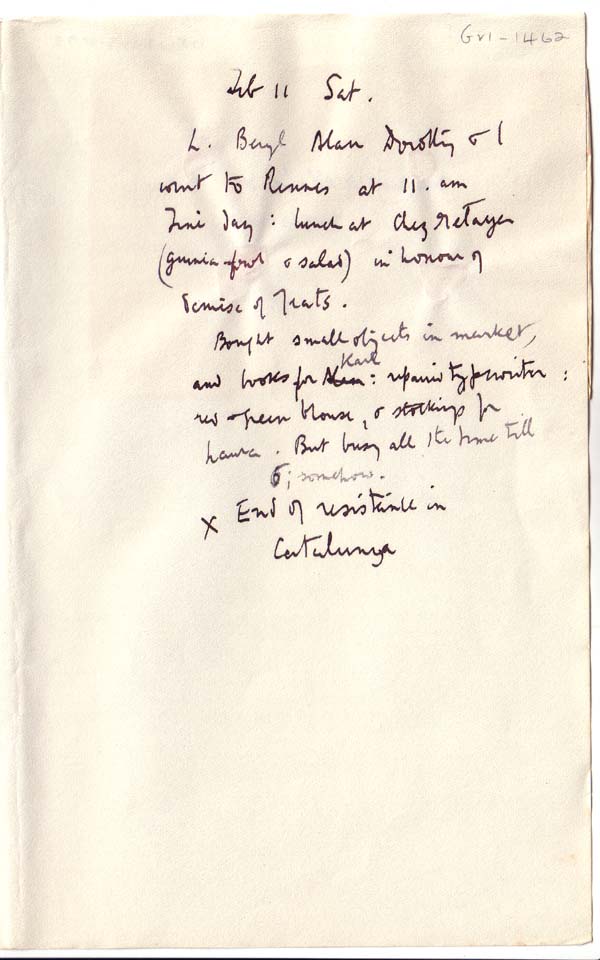 Gr1-1462
Feb 11 Sat.
L. Beryl Alan Dorothy & I
went to Rennes at 11. am
Fine day: lunch at Chez
(guinia fowl & salad) in honour of
demise of Trats.
Bought small objects in market,
Karl
and books for Alan: repair typewriter:
red & green blouse, & stockings for
Laura. But busy all the time till
6; somehow.
x End of resistance in
Catalunya